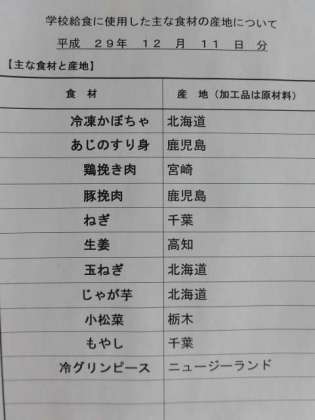 学校給食に使用した主な食材の産地について
平成 29年 12 月 11 日 分
【主な食材と産地】
食 材 産 地（加工品は原材料）
冷凍かぼちゃ 北海道
あじのすり身 鹿児島
鶏挽き肉 宮崎
豚挽肉 鹿児島
ねぎ 千葉
生姜 高知
玉ねぎ 北海道
じゃが芋 北海道
小松菜 栃木
もやし 千葉
冷グリンピース ニュージーランド